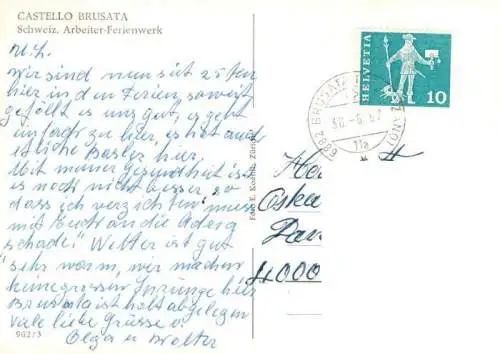 CASTELLO BRUSATA
Schweiz. Arbeiter-Ferienwerk
M. L.
wir sind nun seit 25ten
hier in den Ferien, soweit
gefällt es uns gut, es geht
zu hier, es hat auch
etliche Basler hier.
Mit meiner Gesundheit ist
es noch nicht besser, so
dass ich verzichten muss
mit Euch an die
schade! Wetter ist gut
sehr warm, wir machen
keine grossen Sprünge hier
Brusata ist halt abgelegen
viele liebe Grüsse v.
Olga u Walter
902/3
Foto E. Zürich
HELVETIA
10
6882 BRUSATA
30.-6.67
11a
Oska
4000